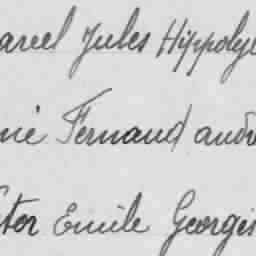 arcel Jules Hippolyt
né Fernand André
ctor Emile Georges